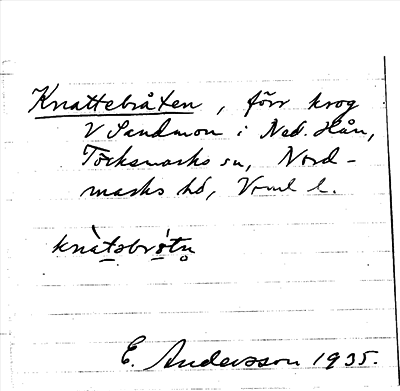 Knattebråten, förr krog
V Sandmon i Ned. Hån,
Töcksmarks sn, Nord-
marks hd, Vrml l.
knàtəbrót̥n̥
E. Andersson 1935.